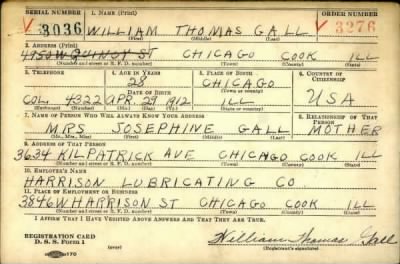 SERIAL NUMBER 1. NAME (Print) ORDER NUMBER
3036 WILLIAM THOMAS GALL 3276
(First) (Middle) (Last)
2. ADDRESS (Print)
1950 W QUINCY ST CHICAGO COOK ILL
(Number and street or R. F. D. number) (Town) (County) (State)
3. TELEPHONE 4. AGE IN YEARS 5. PLACE OF BIRTH 6. COUNTRY OF CITIZENSHIP
28 CHICAGO
DATE OF BIRTH (Town or county)
COL. 4322 APR. 29 1912 ILL USA
(Exchange) (Number) (Mo.) (Day) (Yr.) (State or country)
7. NAME OF PERSON WHO WILL ALWAYS KNOW YOUR ADDRESS 8. RELATIONSHIP OF THAT PERSON
MRS JOSEPHINE GALL MOTHER
(Mr., Mrs., Miss) (First) (Middle) (Last)
9. ADDRESS OF THAT PERSON
3634 KILPATRICK AVE CHICAGO COOK ILL
(Number and street or R. F. D. number) (Town) (County) (State)
10. EMPLOYER'S NAME
HARRISON LUBRICATING CO
11. PLACE OF EMPLOYMENT OR BUSINESS
3846 W HARRISON ST CHICAGO COOK ILL
(Number and street or R. F. D. number) (Town) (County) (State)
I AFFIRM THAT I HAVE VERIFIED ABOVE ANSWERS AND THAT THEY ARE TRUE.
REGISTRATION CARD
D. S. S. Form 1 (over) William Thomas Gall
(Registrant's signature)